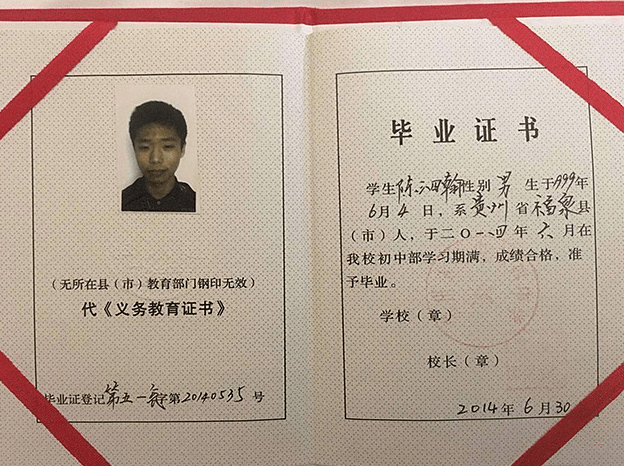 (无所在县(市)教育部门钢印无效)
代《义务教育证书》
毕业证登记第五一 字第20140535号
毕业证书
学生陈 翰性别男 生于1999年
6月4日,系贵州省福泉县
(市)人,于二〇一四年六月在
我校初中部学习期满,成绩合格,准
予毕业。
学校(章)
校长(章)
2014年6月30